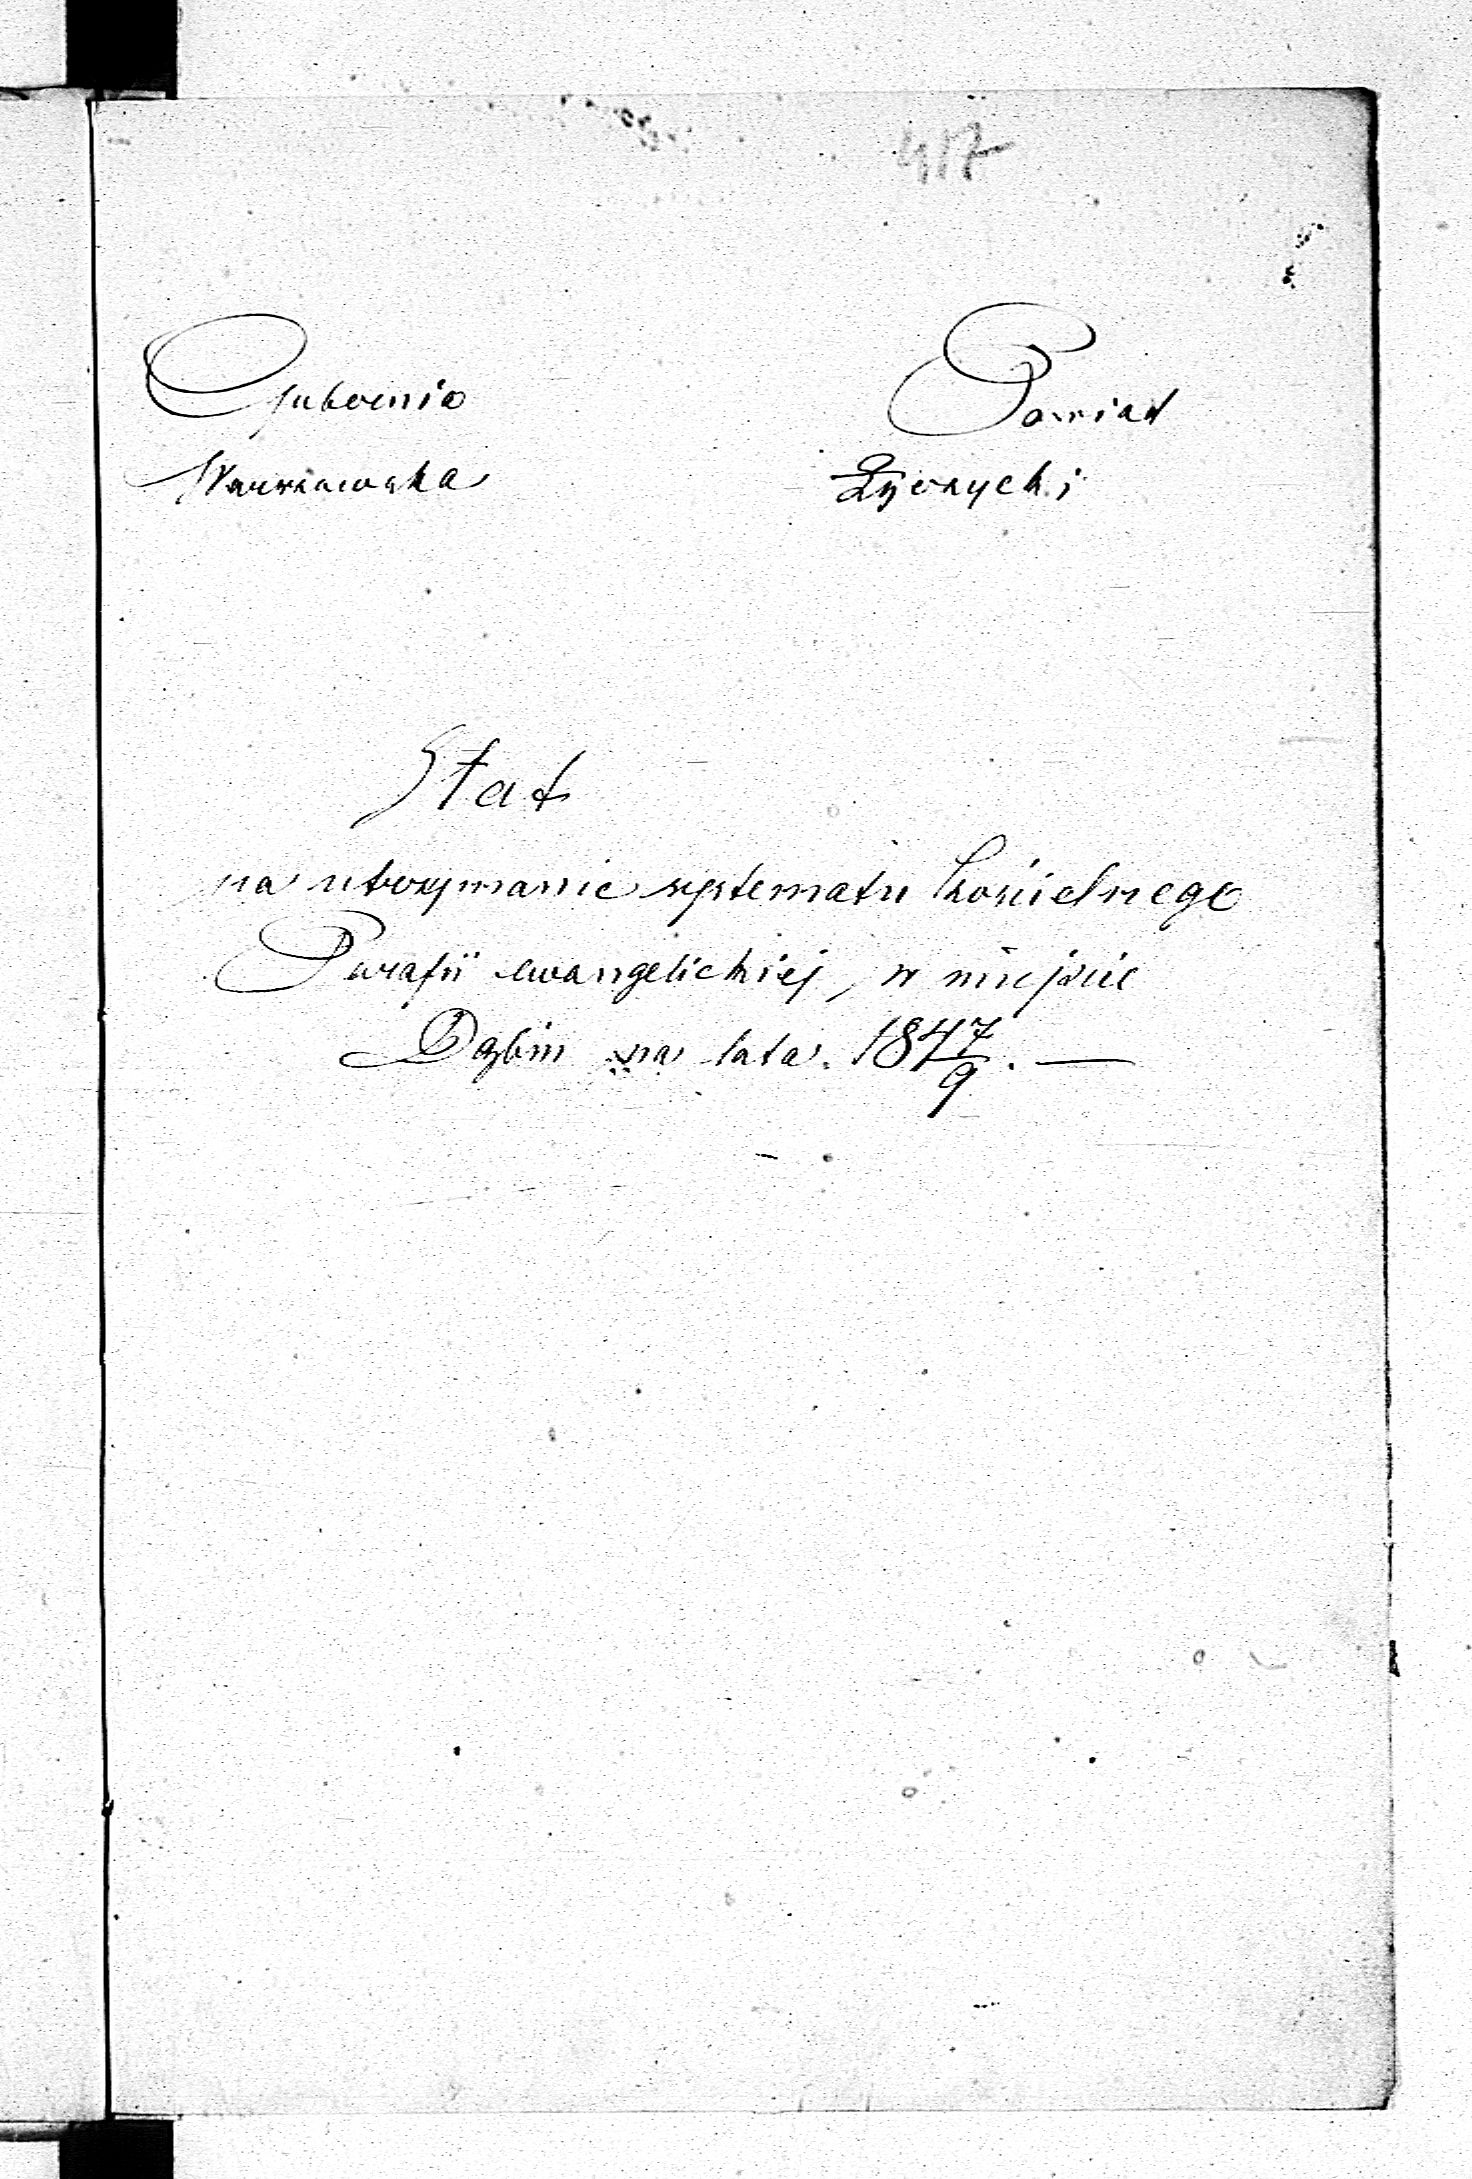 417
Gubernia Powiat
Warszawska Łęczycki
Etat
na utrzymanie systematu kościelnego
Parafii ewangelickiej, w mieście
Dąbiu na lata 1847/9. —